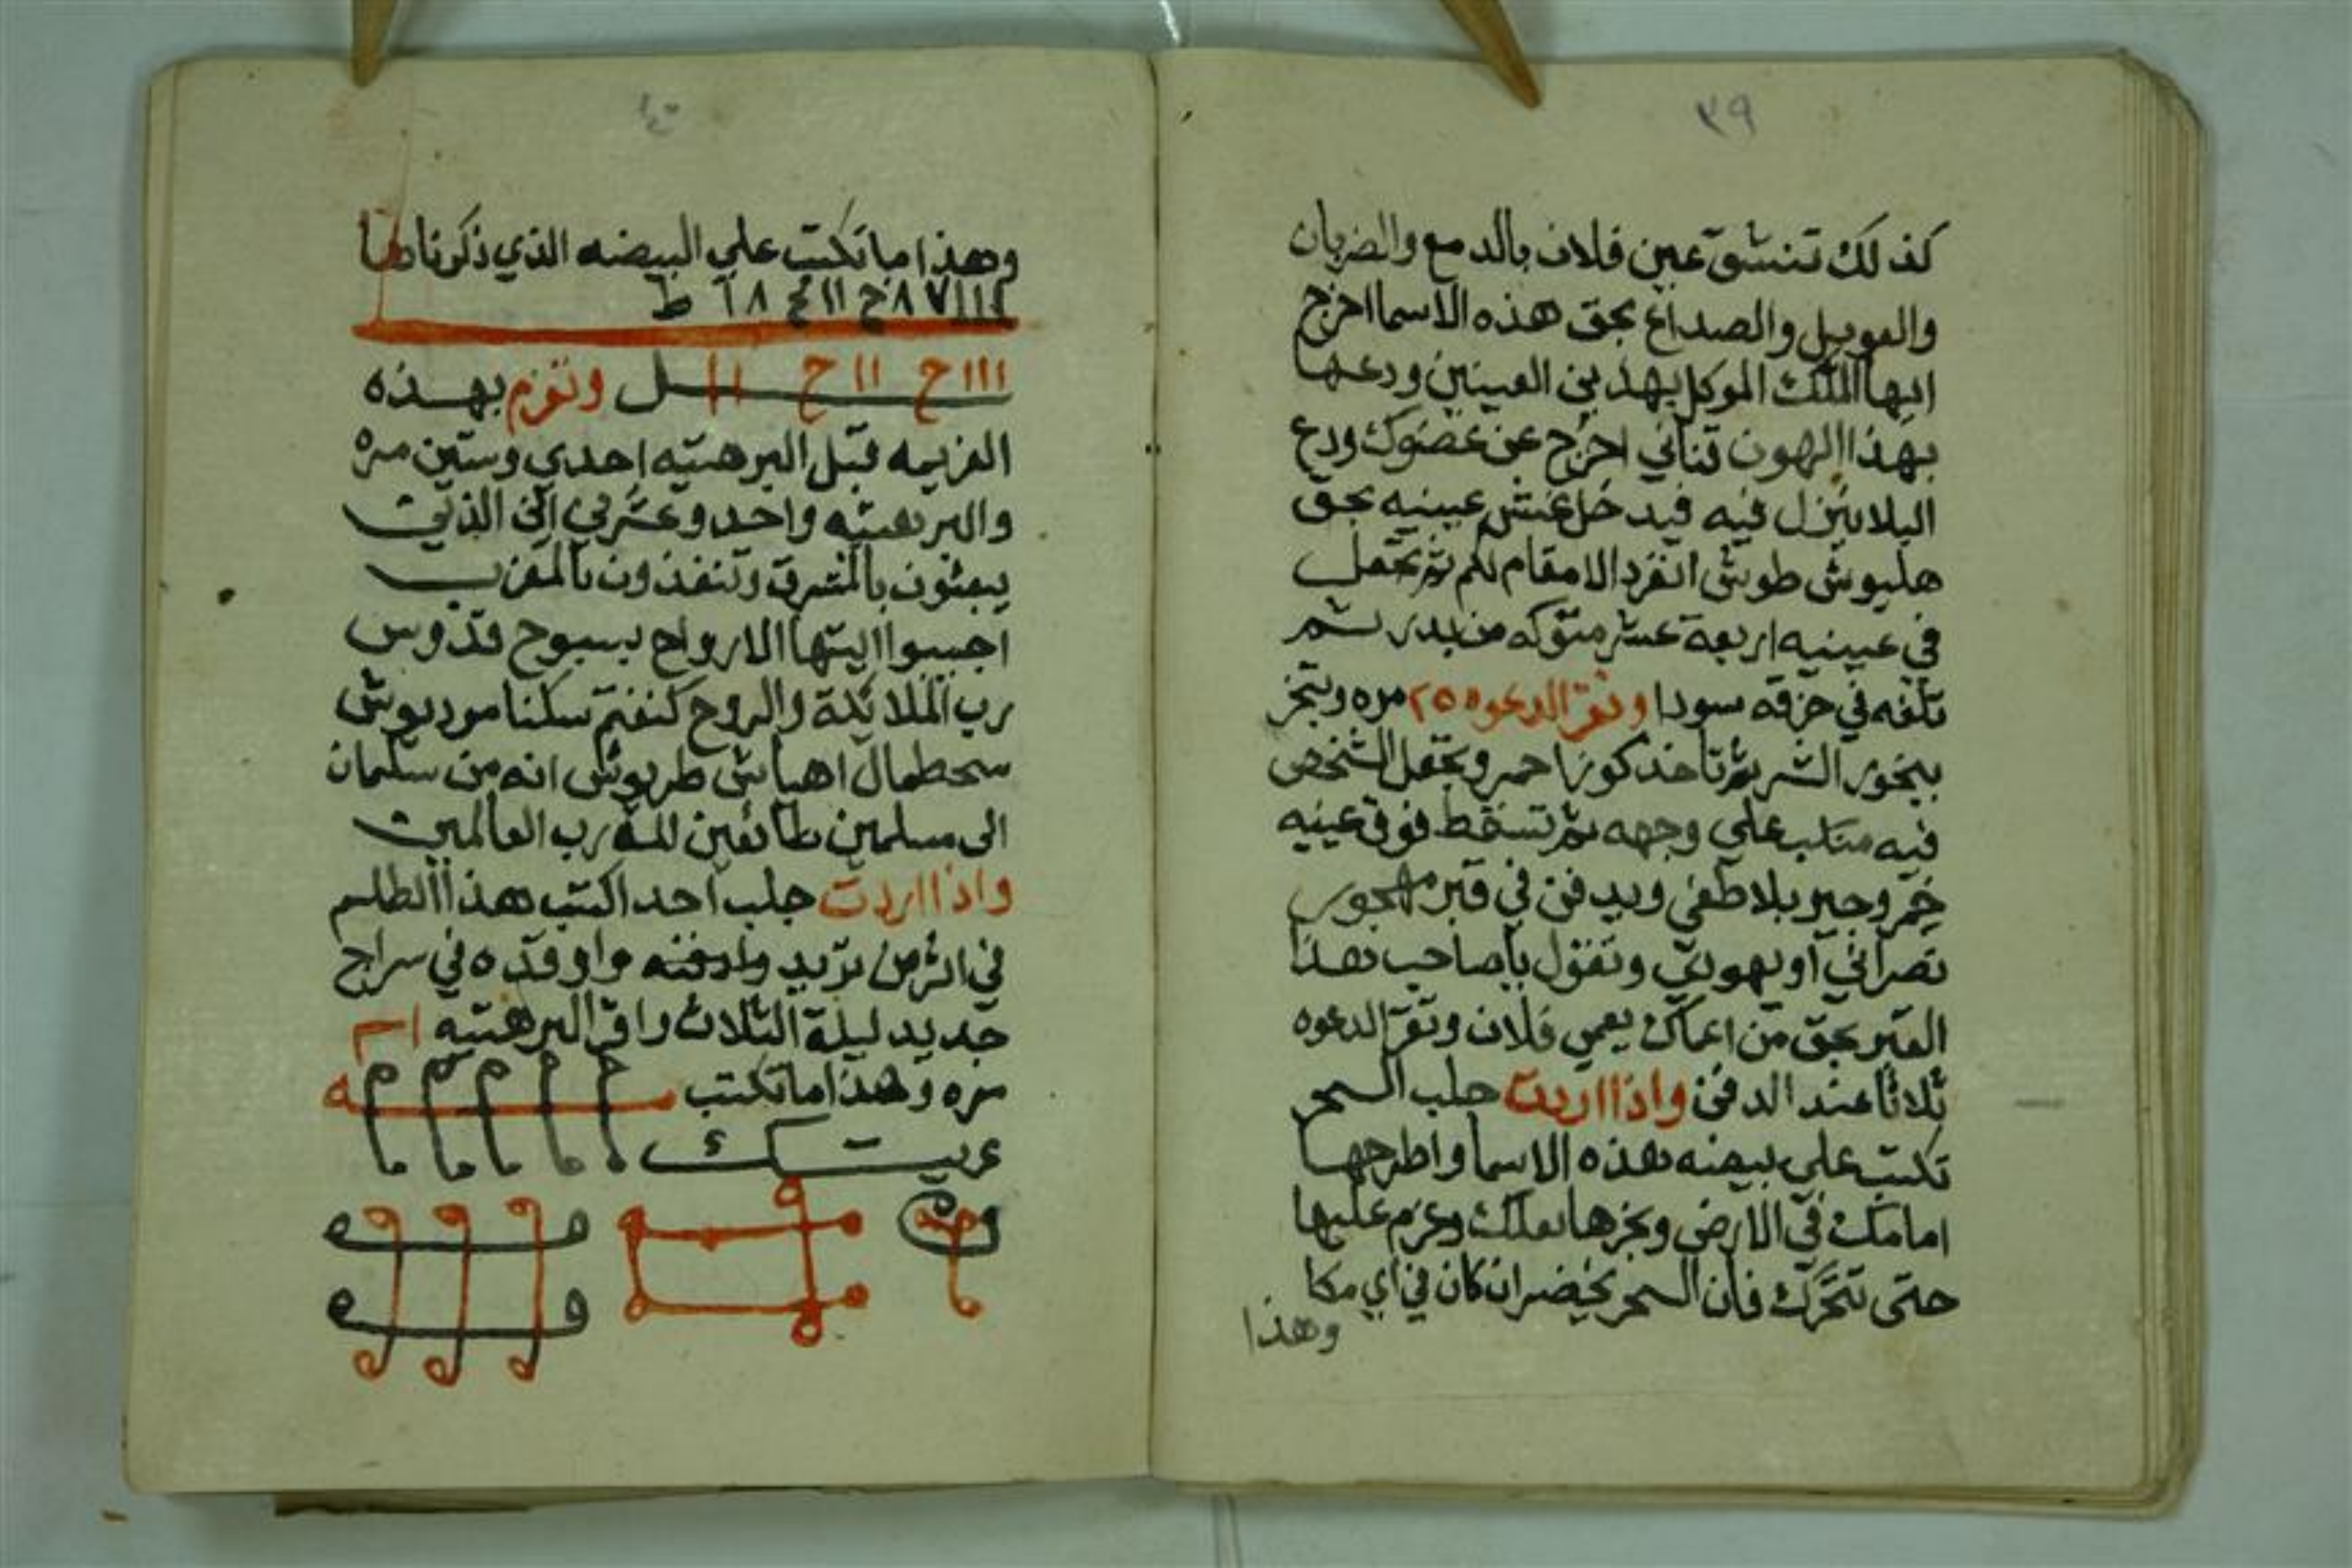 ٣٩
كذلك تنشق عين فلان بالدمع والضربان
والعويل والصداع بحق هذه الاسما اخرج
ايها الملك الموكل بهذين العينين ودعها
بهذا الهون تناني اخرج عن عضوك ودع
البلا ينزل فيه فيدخل غش عينيه بحق
هليوش طوش انفرد الا مقام لكم ثم تجعل
في عينيه اربعة عشر شوكه من سدر ثم
تلفه في خرقه سودا وتقرا الدعوه ٢٥ مره وتبخر
ببخور الشر ثم تاخذ كوز احمر وتجعل الشخص
فيه منكب على وجهه ثم تسقط فوق عينيه
وجير بلا طفى ويدفن في قبر مهجور
نصراني او يهودي وتقول يا صاحب هذا
القبر بحق من اعماك يعمي فلان وتقرا الدعوه
ثلاثا عند الدفن واذا اردت جلب السحر
تكتب على بيضه هذه الاسما واطرحها
امامك في الارض وبخرها بعلك وعزم عليها
حتى تتحرك فان السحر يحضر ان كان في اي مكا
وهذا
٤٠
وهذا ما تكتب علي البيضه الذي ذكرناها
بهذه وتعزم
العزيمه قبل البرهتيه احدي وستين مره
والبرهتيه واحد وعشرين اين الذين
يبعثون بالمشرق وتنفذون بالمغرب
اجيبوا ايتها الارواح بسبوح قدوس
رب الملائكة والروح سكنا موريوش
سحطمال اهياش طربوش انه من سليمان
الى مسلمين طائعين لله رب العالمين
واذا اردت جلب احد اكتب هذا الطلسم
في اثر من تريد وادفنه واوقده في سراج
جديد ليلة الثلاث واقرا البرهتيه
مره وهذا ما تكتب